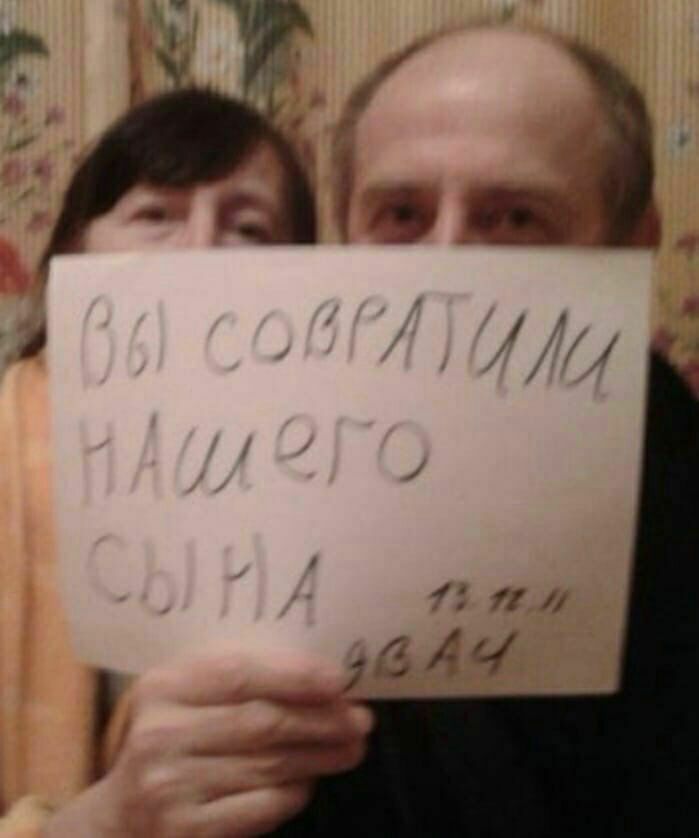 ВЫ СОВРАТИЛИ
НАШЕГО
СЫНА
13.12.11
двач